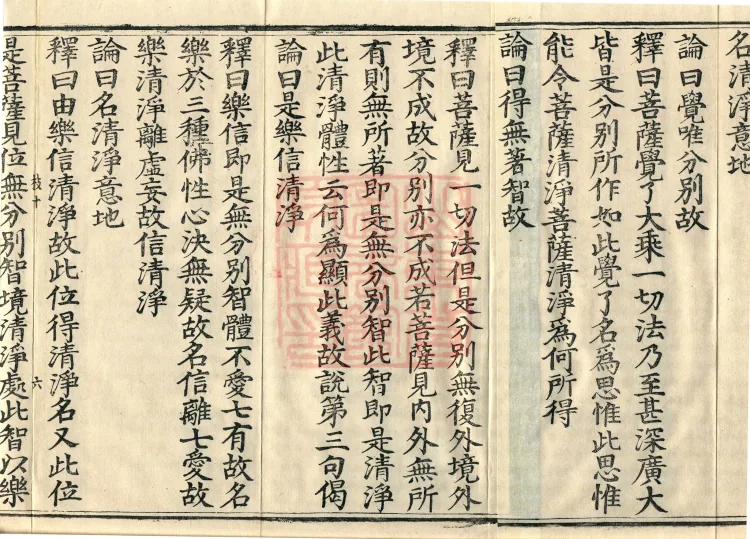 名清淨意地
論曰覺唯分別故
釋曰菩薩覺了大乘一切法乃至甚深廣大
皆是分別所作如此覺了名爲思惟此思惟
能令菩薩清淨菩薩清淨爲何所得
論曰得無著智故
釋曰菩薩見一切法但是分別無復外境外
境不成故分別亦不成若菩薩見內外無所
有則無所著即是無分別智此智即是清淨
此清淨體性云何爲顯此義故說第三句偈
論曰是樂信清淨
釋曰樂信即是無分別智體不愛七有故名
樂於三種佛性心決無疑故名信離七愛故
樂清淨離虛妄故信清淨
論曰名清淨意地
釋曰由樂信清淨故此位得清淨名又此位
六
是菩薩見位無分別智境清淨處此智以樂